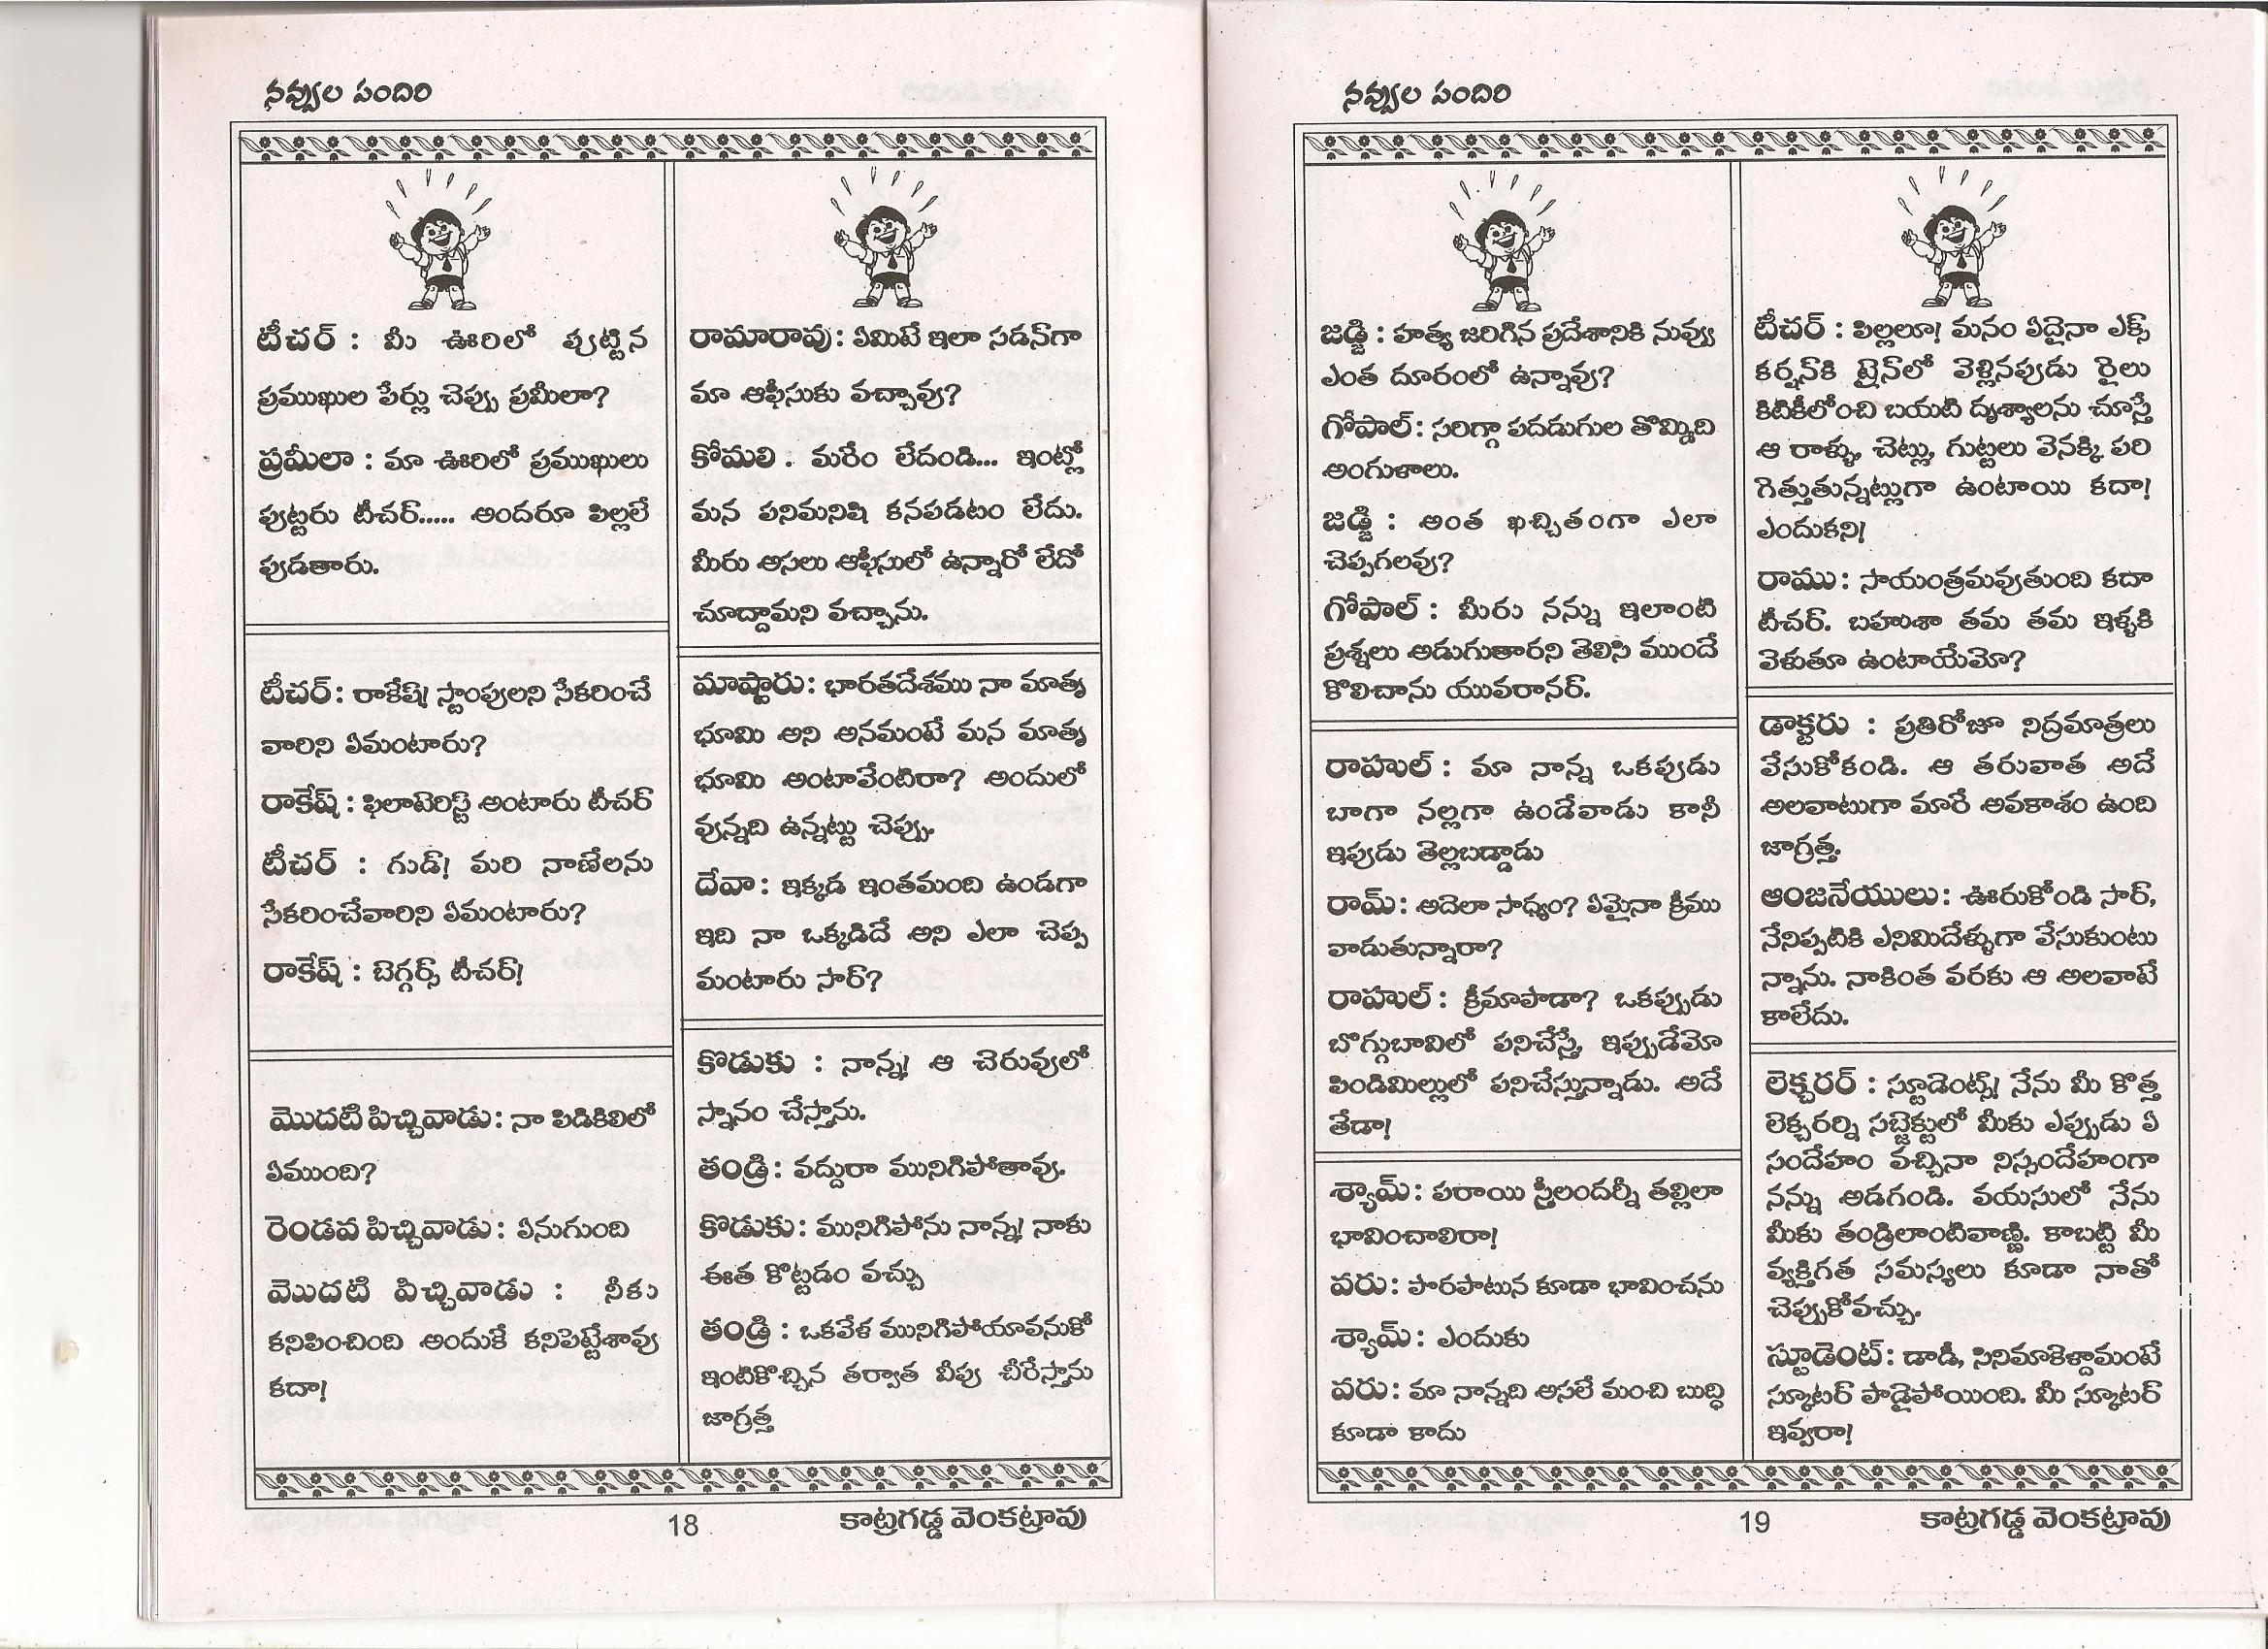 నవ్వుల పందిరి
టీచర్ : మీ ఊరిలో పుట్టిన
ప్రముఖుల పేర్లు చెప్పు ప్రమీలా?
ప్రమీలా : మా ఊరిలో ప్రముఖులు
పుట్టరు టీచర్..... అందరూ పిల్లలే
పుడతారు.
టీచర్: రాకేష్! స్టాంపులని సేకరించే
వారిని ఏమంటారు?
రాకేష్ : ఫిలాటెరిస్ట్ అంటారు టీచర్
టీచర్ : గుడ్! మరి నాణేలను
సేకరించేవారిని ఏమంటారు?
రాకేష్ : బెగ్గర్స్ టీచర్!
మొదటి పిచ్చివాడు: నా పిడికిలిలో
ఏముంది?
రెండవ పిచ్చివాడు : ఏనుగుంది
మొదటి పిచ్చివాడు : నీకు
కనిపించింది అందుకే కనిపెట్టేశావు
కదా!
రామారావు: ఏమిటే ఇలా సడన్‌గా
మా ఆఫీసుకు వచ్చావు?
కోమలి . మరేం లేదండి... ఇంట్లో
మన పనిమనిషి కనపడటం లేదు.
మీరు అసలు ఆఫీసులో ఉన్నారో లేదో
చూద్దామని వచ్చాను.
మాష్టారు: భారతదేశము నా మాతృ
భూమి అని అనమంటే మన మాతృ
భూమి అంటావేంటిరా? అందులో
వున్నది ఉన్నట్టు చెప్పు.
దేవా : ఇక్కడ ఇంతమంది ఉండగా
ఇది నా ఒక్కడిదే అని ఎలా చెప్ప
మంటారు సార్?
కొడుకు : నాన్న! ఆ చెరువులో
స్నానం చేస్తాను.
తండ్రి : వద్దురా మునిగిపోతావు.
కొడుకు: మునిగిపోను నాన్న! నాకు
ఈత కొట్టడం వచ్చు
తండ్రి : ఒకవేళ మునిగిపోయావనుకో
ఇంటికొచ్చిన తర్వాత వీపు చీరేస్తాను
జాగ్రత్త
18
కాట్రగడ్డ వెంకట్రావు
నవ్వుల పందిరి
జడ్జి : హత్య జరిగిన ప్రదేశానికి నువ్వు
ఎంత దూరంలో ఉన్నావు?
గోపాల్: సరిగ్గా పదడుగుల తొమ్మిది
అంగుళాలు.
జడ్జి : అంత ఖచ్చితంగా ఎలా
చెప్పగలవు?
గోపాల్ : మీరు నన్ను ఇలాంటి
ప్రశ్నలు అడుగుతారని తెలిసి ముందే
కొలిచాను యువరానర్.
రాహుల్ : మా నాన్న ఒకప్పుడు
బాగా నల్లగా ఉండేవాడు కానీ
ఇప్పుడు తెల్లబడ్డాడు
రామ్: అదెలా సాధ్యం? ఏమైనా క్రీము
వాడుతున్నారా?
రాహుల్ : క్రీమాపాడా? ఒకప్పుడు
బొగ్గుబావిలో పనిచేస్తే, ఇప్పుడేమో
పిండిమిల్లులో పనిచేస్తున్నాడు. అదే
తేడా!
శ్యామ్: పరాయి స్త్రీలందర్నీ తల్లిలా
భావించాలిరా!
వరు: పొరపాటున కూడా భావించను
శ్యామ్ : ఎందుకు
వరు: మా నాన్నది అసలే మంచి బుద్ధి
కూడా కాదు
టీచర్ : పిల్లలూ! మనం ఏదైనా ఎక్స్
కర్షన్‌కి ట్రైన్‌లో వెళ్లినప్పుడు రైలు
కిటికీలోంచి బయటి దృశ్యాలను చూస్తే
ఆ రాళ్ళు, చెట్లు, గుట్టలు వెనక్కి పరి
గెత్తుతున్నట్లుగా ఉంటాయి కదా!
ఎందుకని!
రాము: సాయంత్రమవుతుంది కదా
టీచర్. బహుశా తమ తమ ఇళ్ళకి
వెళుతూ ఉంటాయేమో?
డాక్టరు : ప్రతిరోజూ నిద్రమాత్రలు
వేసుకోకండి. ఆ తరువాత అదే
అలవాటుగా మారే అవకాశం ఉంది
జాగ్రత్త.
ఆంజనేయులు: ఊరుకోండి సార్,
నేనిప్పటికి ఎనిమిదేళ్ళుగా వేసుకుంటు
న్నాను. నాకింత వరకు ఆ అలవాటే
కాలేదు.
లెక్చరర్ : స్టూడెంట్స్! నేను మీ కొత్త
లెక్చరర్ని సబ్జెక్టులో మీకు ఎప్పుడు ఏ
సందేహం వచ్చినా నిస్సందేహంగా
నన్ను అడగండి. వయసులో నేను
మీకు తండ్రిలాంటివాణ్ణి. కాబట్టి మీ
వ్యక్తిగత సమస్యలు కూడా నాతో
చెప్పుకోవచ్చు.
స్టూడెంట్: డాడీ, సినిమాకెళ్దామంటే
స్కూటర్ పాడైపోయింది. మీ స్కూటర్
ఇవ్వరా!
19
కాట్రగడ్డ వెంకట్రావు